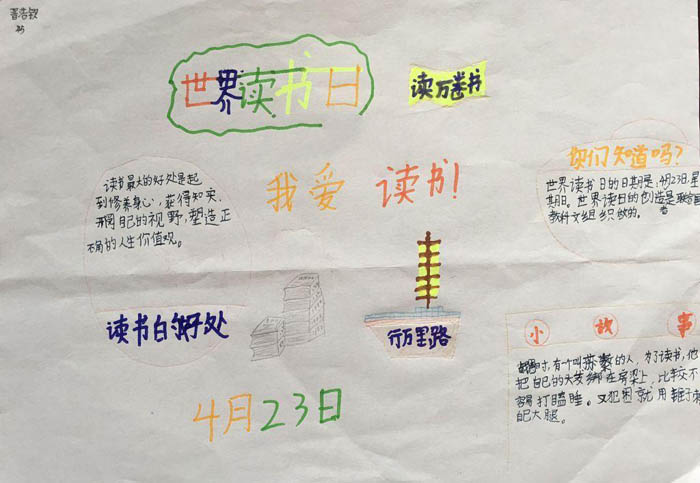 世界读书日
读万卷书
我爱 读书!
读书最大的好处是起
到修养身心，获得知实，
开阔自己的视野，塑造正
角的人生价值观。
读书的好处
你们知道吗?
世界读书日的日期是，4月23日，星
期日。世界读日的创造是联合国
教科文组织做的。
行万里路
小故事
时，有个叫苏秦的人，为了读书，他
把自己的头发绑在房梁上，比较不
容易打瞌睡。又犯困就用锥子刺
自己大腿。
4月23日